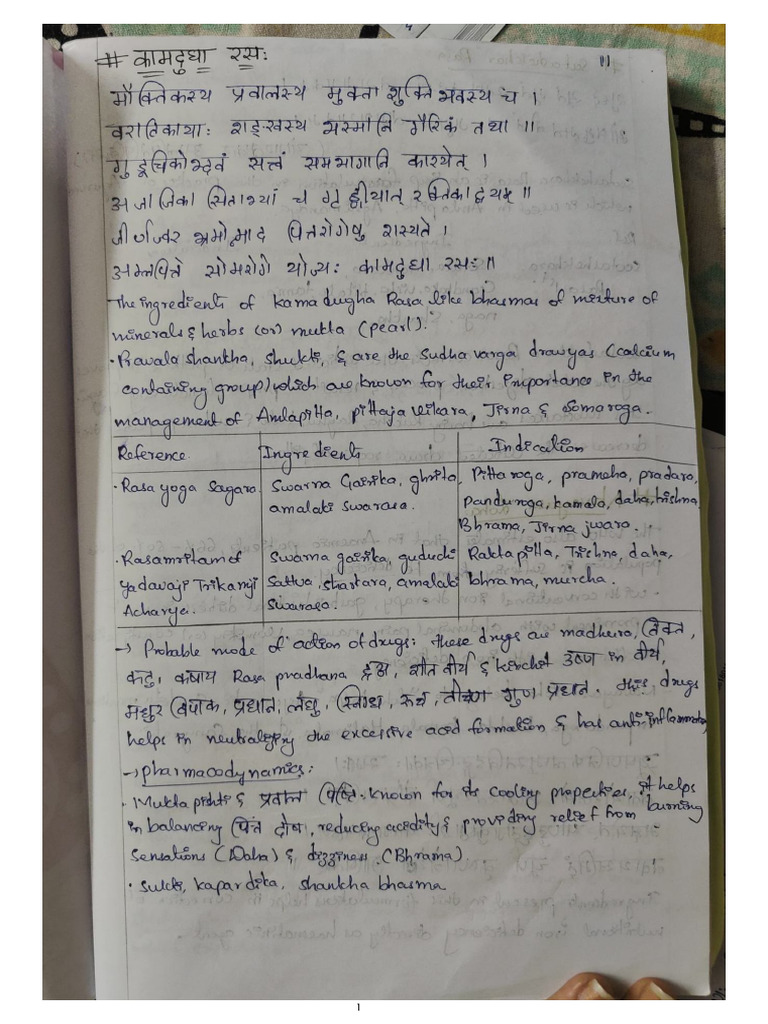 # कामदुधा रसः 11
मौक्तिकस्य प्रवालस्य मुक्ता शुक्ति भवस्य च ।
वराटिकायाः शङ्खस्य भस्मानि गैरिकं तथा ॥
गुडूचिकोद्भवं सत्त्वं समभागानि कारयेत् ।
अजाजिका सिताभ्यां च गृह्णीयात् रक्तिकाद्वयम् ॥
जीर्णज्वर भ्रमोन्माद पित्तरोगेषु शस्यते ।
अम्लपित्ते सोमरोगे योज्यः कामदुधा रसः ॥
The ingredients of kamadugha Rasa like bhasmas of mixture of
minerals & herbs (or) mukta (pearl).
• Pravala shankha, shukti, & are the sudha varga dravyas (calcium
containing group) which are known for their importance in the
management of Amlapitta, pittaja vikara, Jirna & Somaroga.
Reference Ingredients Indication
• Rasa yoga sagara Swarna Gairika, ghrita, Pittaroga, prameha, pradara,
amalaki swarasa. Panduroga, kamala, daha, trishna,
Bhrama, Jirna jwara.
• Rasamritam of Swarna gairika, guduchi Raktapitta, Trishna, daha,
yadavaji Trikamji Sattva, sharkara, amalaki bhrama, murcha.
Acharya. Swarasa
→ Probable mode of action of drugs: These drugs are madhura, तिक्त,
कटु, कषाय Rasa pradhana शीत वीर्य & kinchit उष्ण in वीर्य,
मधुर विपाक, प्रधान, लघु, स्निग्ध, रुक्ष, तीक्ष्ण गुण प्रधान. This drugs
helps in neutralizing the excessive acid formation & has anti-inflammatory
→ pharmacodynamics:
• Mukta pishti & प्रवाल पिष्टि: known for its cooling properties, it helps
in balancing पित्त दोष, reducing acidity & providing relief from burning
sensations (Daha) & dizziness. (Bhrama)
• sukti, kapardika, shankha bhasma
1